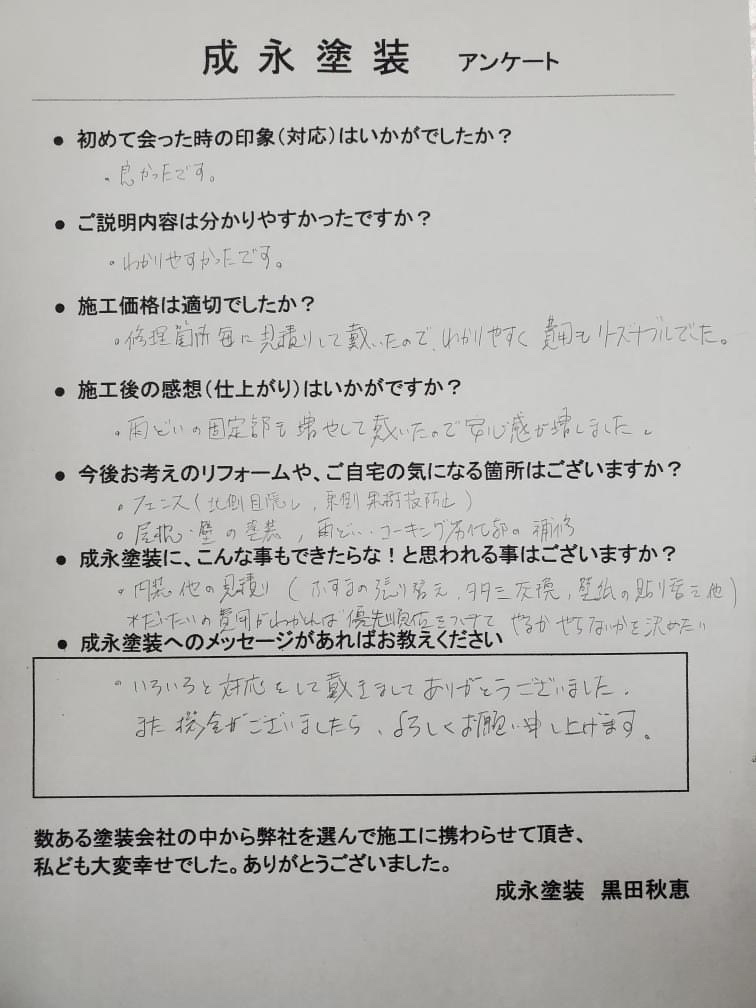 成永塗装 アンケート
● 初めて会った時の印象（対応）はいかがでしたか？
・良かったです。
● ご説明内容は分かりやすかったですか？
・わかりやすかったです。
● 施工価格は適切でしたか？
・修理箇所毎に見積りして戴いたので、わかりやすく費用もリーズナブルでした。
● 施工後の感想（仕上がり）はいかがですか？
・雨どいの固定部も増やして戴いたので安心感が増しました。
● 今後お考えのリフォームや、ご自宅の気になる箇所はございますか？
・フェンス（北側目隠し、東側 防止）
・屋根・壁の塗装、雨どい・コーキング劣化部の補修
● 成永塗装に、こんな事もできたらな！と思われる事はございますか？
・内装他の見積り（ふすまの張り替え、タタミ交換、壁紙の貼り替え他）
＊だいたいの費用がわかれば優先順位をつけて やるかやらないかを決めたい
● 成永塗装へのメッセージがあればお教えください
・いろいろと対応をして戴きましてありがとうございました。
また機会がございましたら、よろしくお願い申し上げます。
数ある塗装会社の中から弊社を選んで施工に携わらせて頂き、
私ども大変幸せでした。ありがとうございました。
成永塗装 黒田秋恵